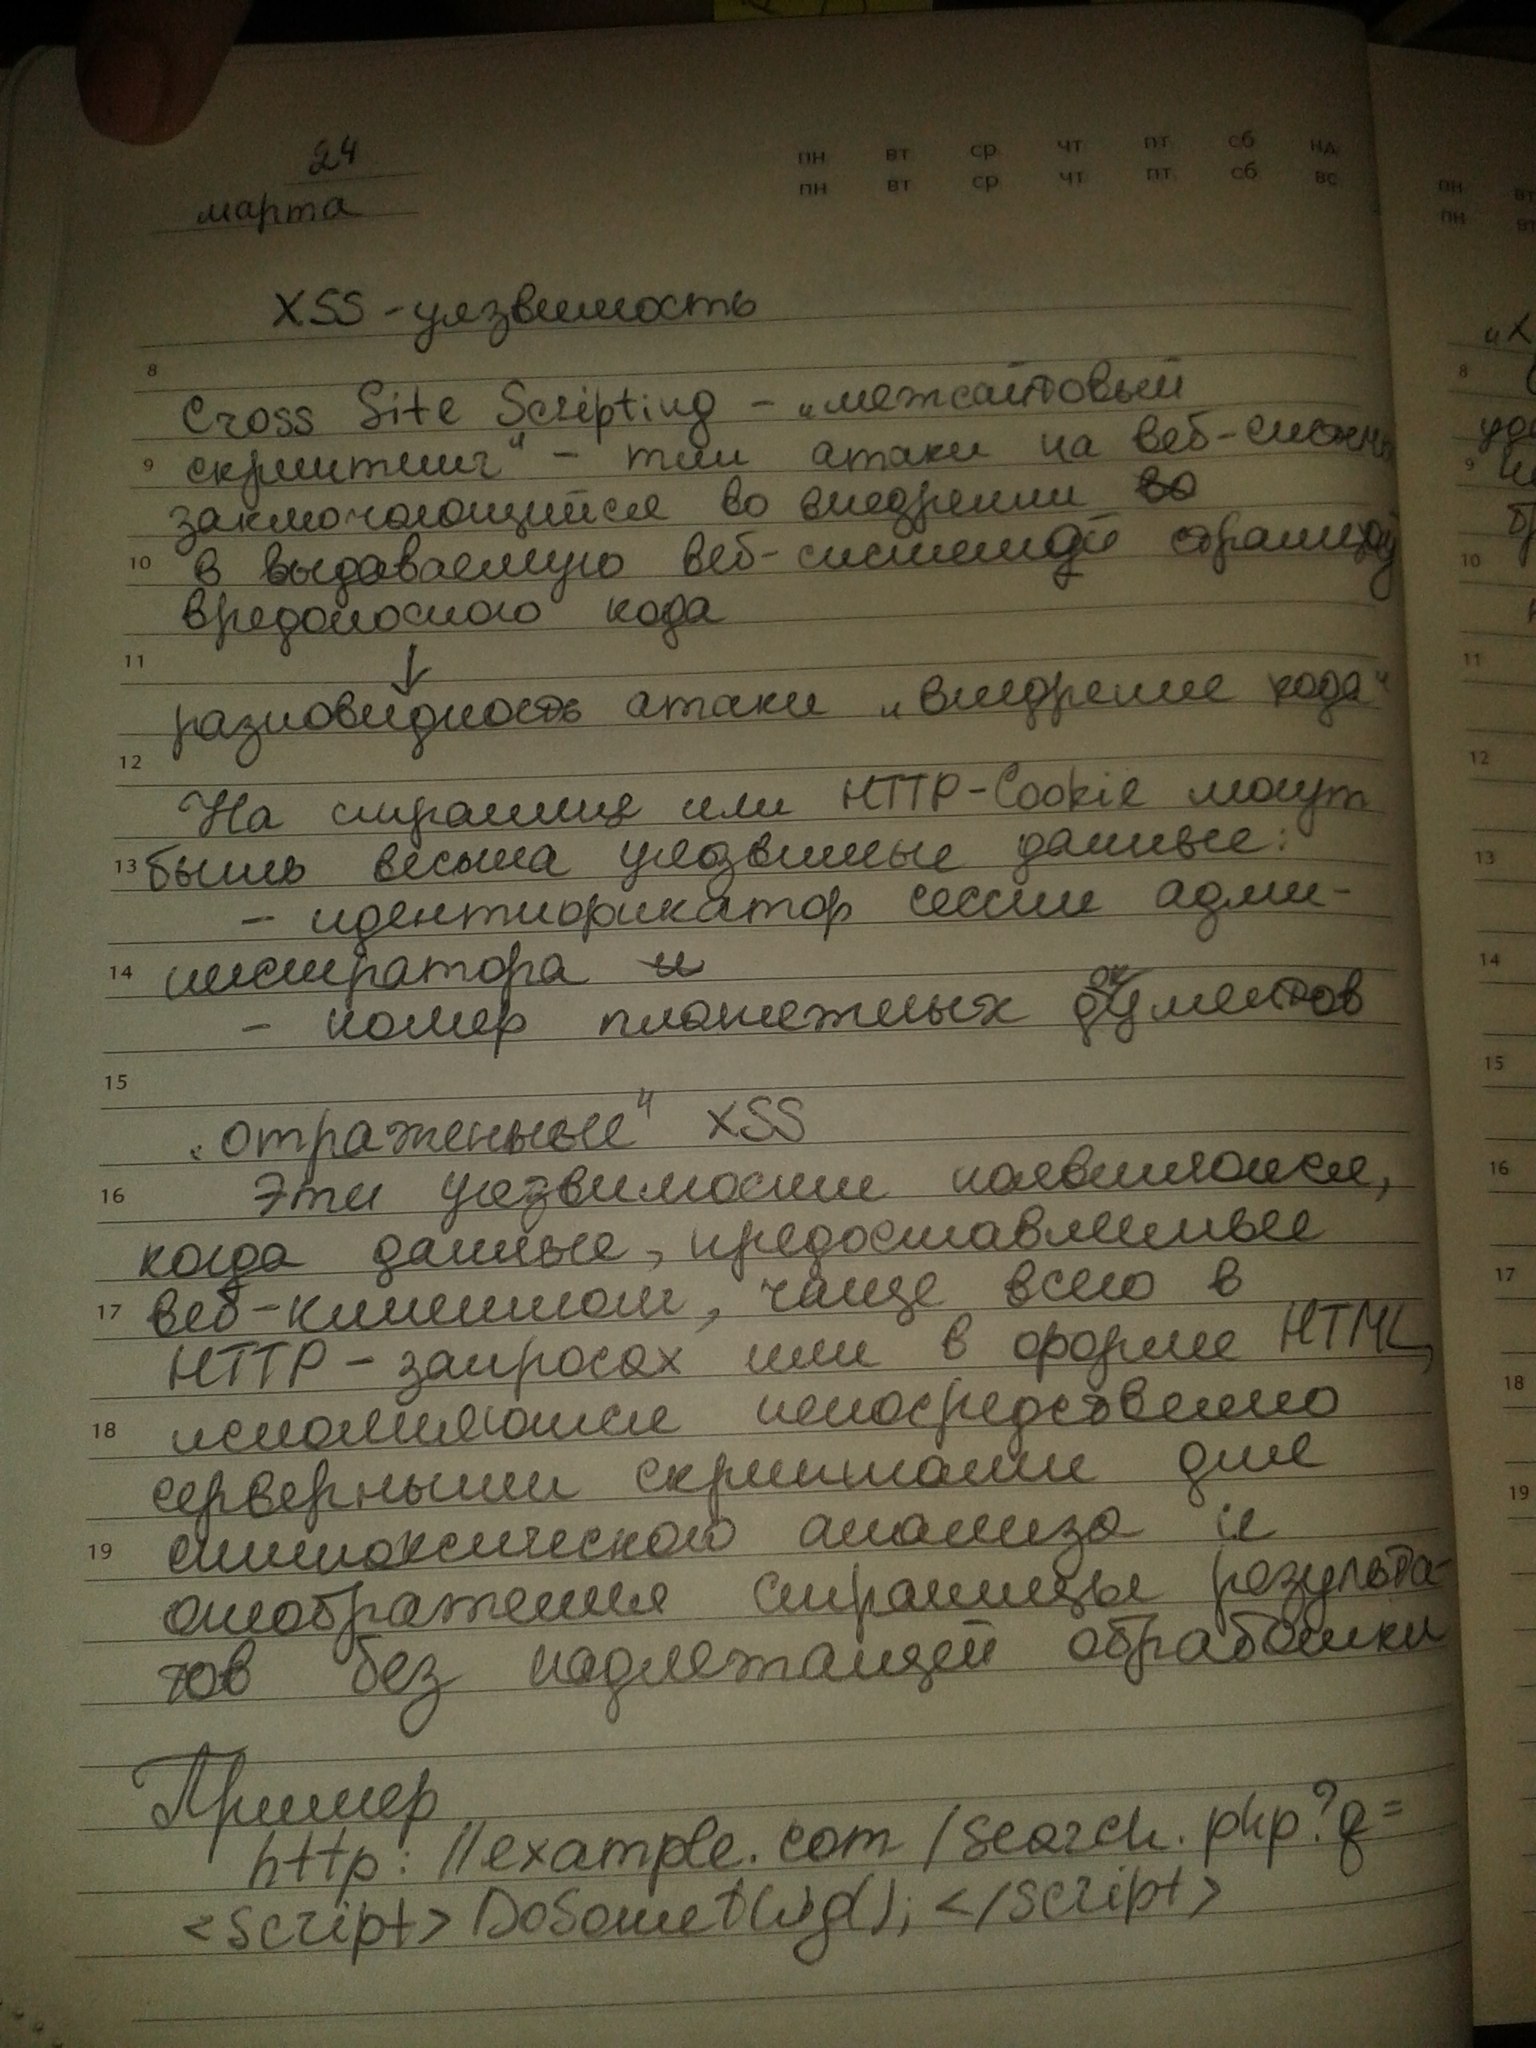 24
марта
пн вт ср чт пт сб нд
пн вт ср чт пт сб вс
XSS - уязвимость
8
Cross Site Scripting - „межсайтовый
9 скриптинг" - тип атаки на веб-системы
заключающийся во внедрении во
10 в выдаваемую веб-системой страницу
вредоносного кода
11 ↓
разновидность атаки „внедрение кода"
12
На странице или HTTP-Cookie могут
13 быть весьма уязвимые данные:
- идентификатор сессии адми-
14 нистратора и
- номер платежных документов
15
„отраженные" XSS
16 Эти уязвимости появляются,
когда данные, предоставленные
17 веб-клиентом, чаще всего в
HTTP - запросах или в форме HTML,
18 исполняются непосредственно
серверными скриптами для
19 синтаксического анализа и
отображения страницы результа-
тов без надлежащей обработки
Пример
http://example.com/search.php?q=
<script>DoSomething();</script>
пн вт
пн вт
„X
8
9
10
11
12
13
14
15
16
17
18
19